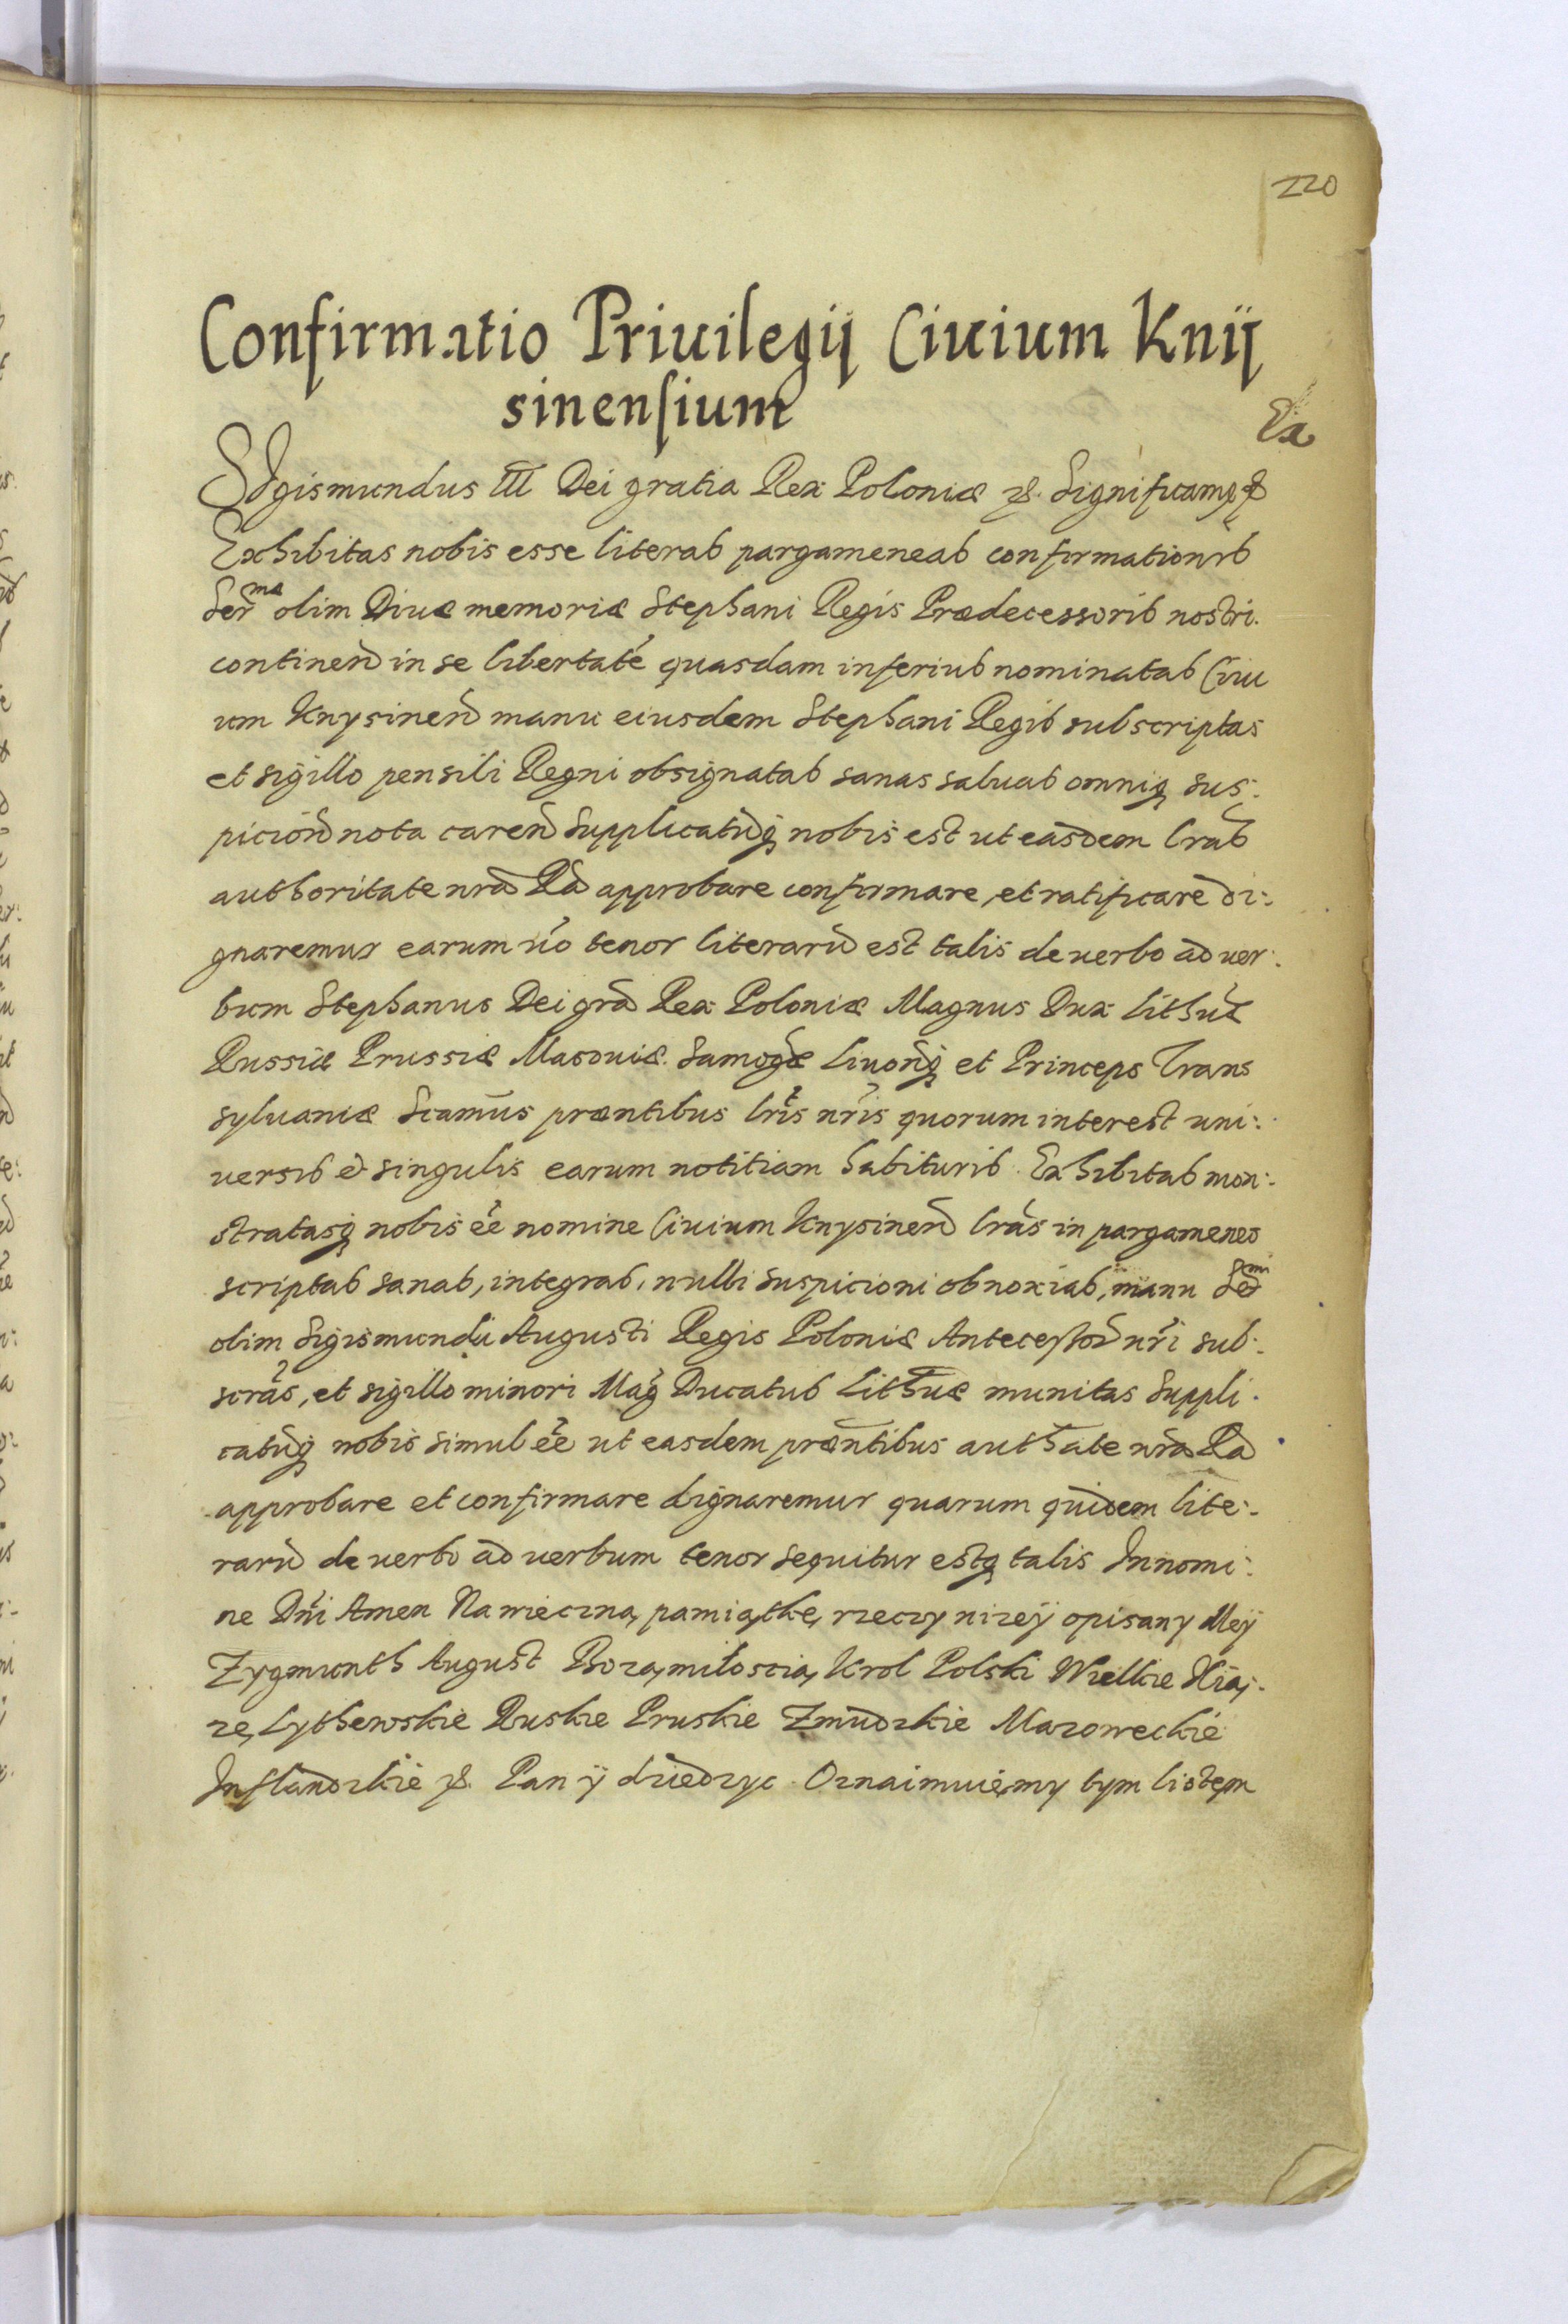 220
Confirmatio Priuilegij Ciuium Knij
sinensium
Ex
Sigismundus III Dei gratia Rex Poloniæ &. Significamq &
Exhibitas nobis esse literas pargameneas confirmationis
Sermæ olim Diuæ memoriæ Stephani Regis Prædecessoris nostri.
continen in se libertate quasdam inferius nominatas Ciui
um Knysinen manu eiusdem Stephani Regis subscriptas
et sigillo pensili Regni obsignatas sanas saluas omniq sus:
picion nota caren Supplicatuq nobis est ut easdem lras
authoritate nra Ra approbare confirmare, et ratificare di:
gnaremur earum uo tenor literaru est talis de uerbo ad uer:
bum Stephanus Dei gra Rex Poloniæ Magnus Dux Lithuæ
Russiæ Prussiæ Masouiæ Samogæ Liuoniq et Princeps Trans
syluaniæ Scamus præntibus lris nris quorum interest uni:
uersis & singulis earum notitiam habituris. Exhibitas mon:
stratasq nobis ee nomine Ciuium Knysinen lras in pargameneo
scriptas sanas, integras, nulli suspicioni obnoxias, manu Sermi
olim Sigismundi Augusti Regis Poloniæ Antecessor nri sub:
scras, et sigillo minori Mag Ducatus Lithuæ munitas Suppli:
catuq nobis simul ee ut easdem præntibus authate nra Ra
approbare et confirmare dignaremur quarum quidem lite:
raru de uerbo ad uerbum tenor sequitur estq talis In nomi:
ne Dni Amen Na wieczną pamiątkę rzeczy nizej opisany Mÿ
Zygmunth August Bozą miłoscią Krol Polski Wielkie Xią:
ze Lythewskie Ruskie Pruskie Zmudzkie Mazoweckie
Inflandzkie &. Pan ÿ dziedzyc. Oznaimuiemy tym listem